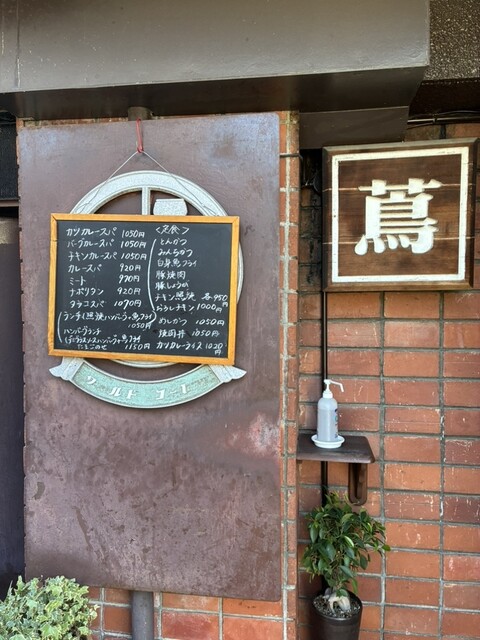 カツカレースパ 1050円
バーグカレースパ 1050円
チキンカレースパ 1050円
カレースパ 920円
ミート 920円
ナポリタン 920円
タラコスパ 1070円
ランチ(照焼ハンバーグ、魚フライ
1050円
ハンバーグランチ
ハンバーグ魚フライ
1150円
<定食>
とんかつ
みんちかつ
白身魚フライ
豚焼肉
豚しょうが
チキン照焼 各950円
おろしチキン 1000円
めしかつ 1050円
焼肉丼 1050円
カツカレーライス 1020円
蔦
ワールド コーヒー